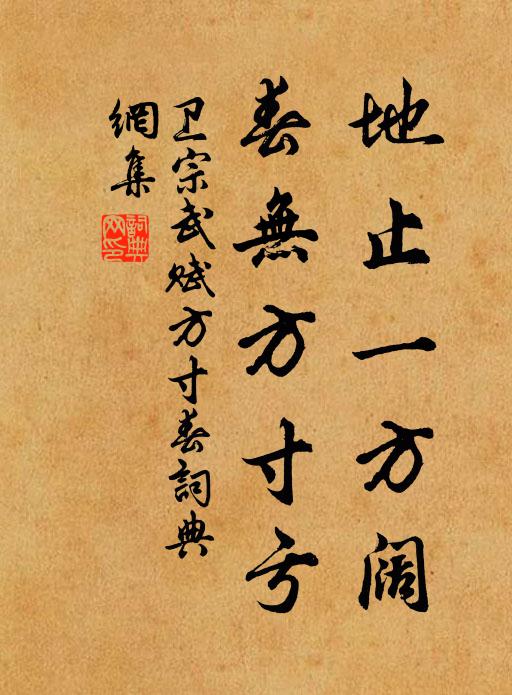 地止一方阔
春無方寸亏
卫宗武赋方寸春詞典
網集
詞典
网印